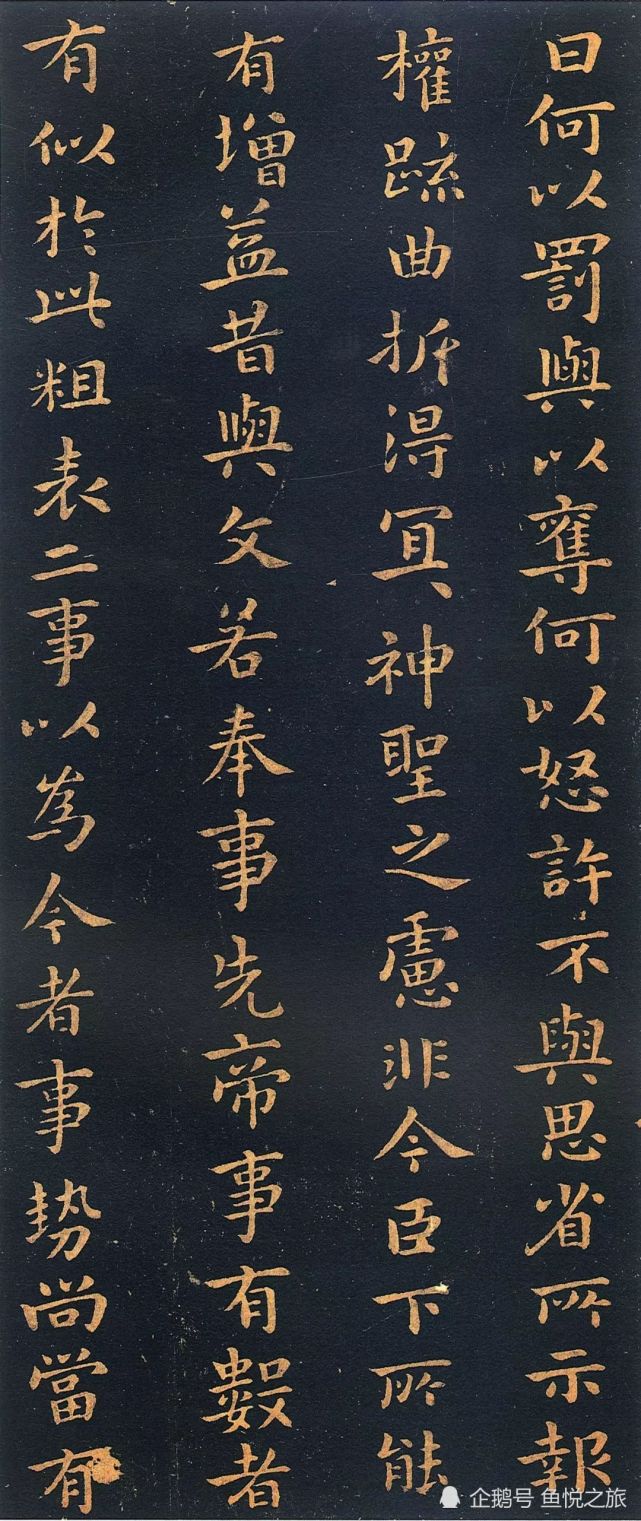 曰何以罰與以奪何以怒許不與思省所示報
權疏曲折得冝神聖之慮非今臣下所能
有增益昔與文若奉事先帝事有數者
有似於此粗表二事以為今者事勢尚當有
企鹅号 鱼悦之旅